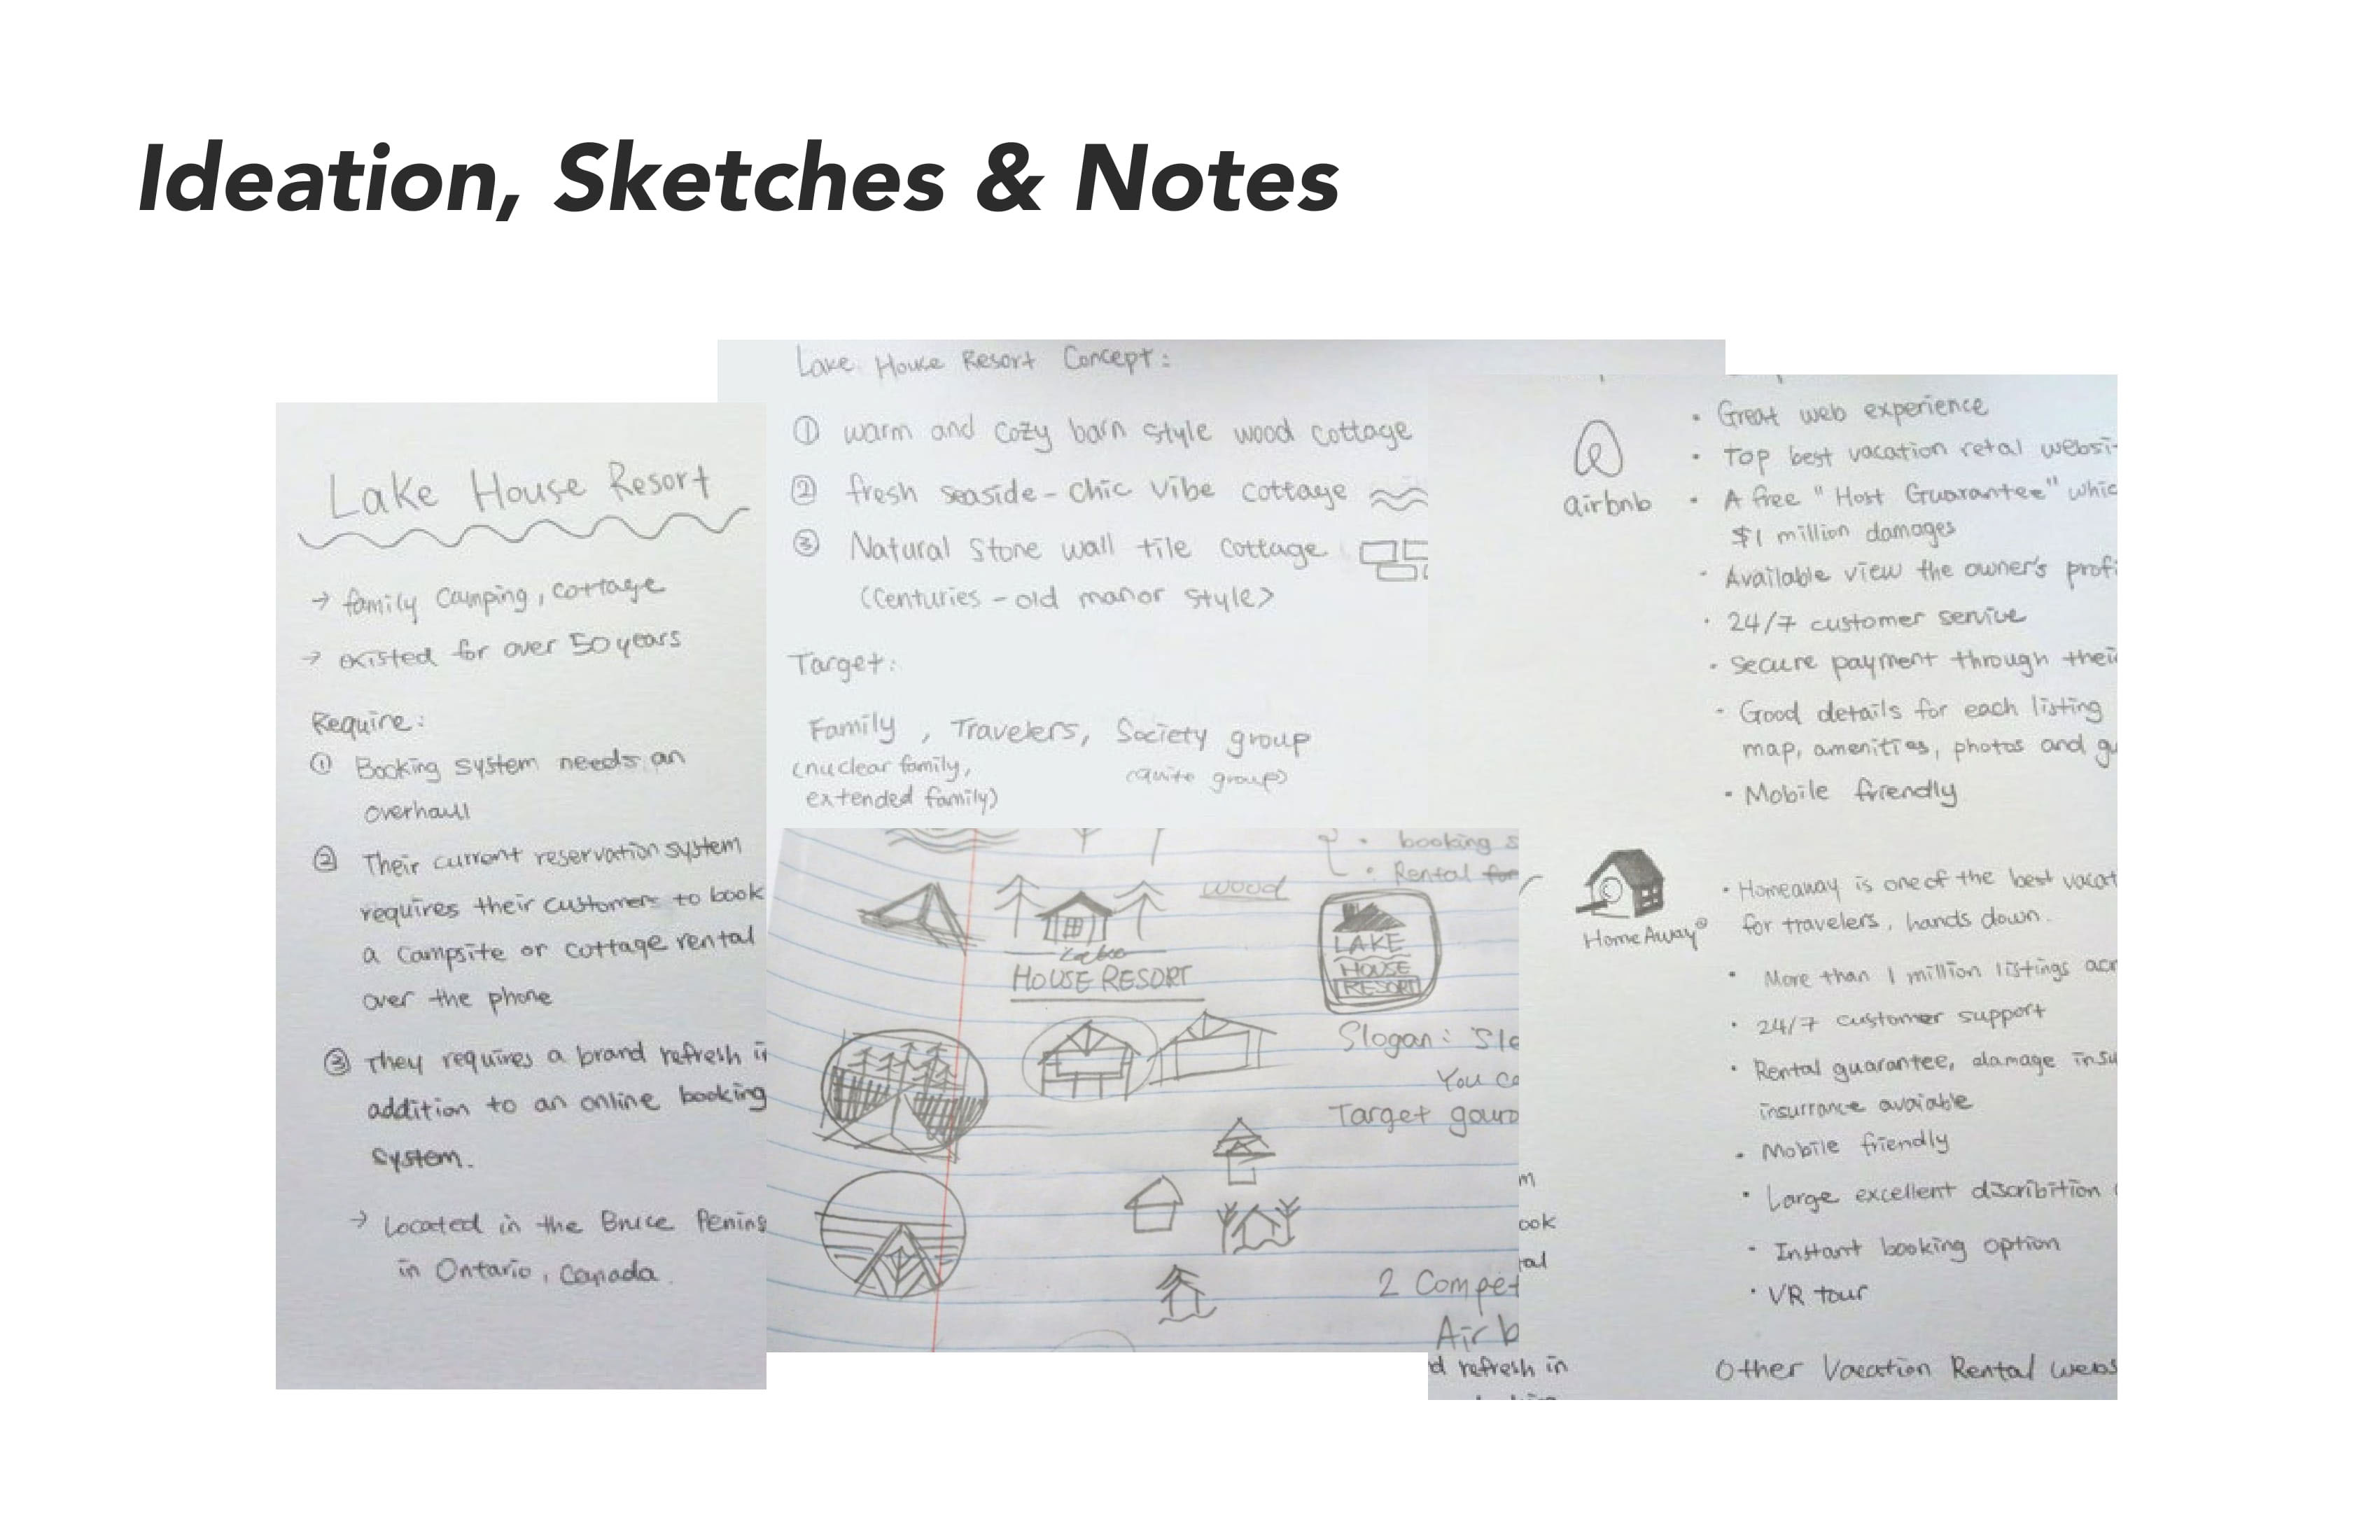 Ideation, Sketches & Notes
Lake House Resort
→ family camping, cottage
→ existed for over 50 years
Require:
① Booking system needs an
overhaul
② Their current reservation system
requires their customers to book
a campsite or cottage rental
over the phone
③ They requires a brand refresh in
addition to an online booking
system.
→ Located in the Bruce Penins
in Ontario, Canada.
Lake House Resort Concept:
① warm and cozy barn style wood cottage
② fresh seaside-chic vibe cottage
③ Natural stone wall tile cottage
(Centuries-old manor style>
Target:
Family, Travelers, Society group
(nuclear family,
extended family)
(quite group)
• booking s
• Rental for
wood
HOUSE RESORT
LAKE
HOUSE
RESORT
Slogan: Slo
You co
Target gour
2 Compet
Airb
airbnb
• Great web experience
• Top best vacation retal websi
• A free "Host Guarantee" whic
$1 million damages
• Available view the owner's profi
• 24/7 customer service
• Secure payment through thei
• Good details for each listing
map, amenities, photos and gu
• Mobile friendly
HomeAway®
• Homeaway is one of the best vacat
for travelers, hands down.
• More than 1 million listings acr
• 24/7 customer support
• Rental guarantee, damage insu
insurrance avaiable
• Mobile friendly
• Large excellent discribition
• Instant booking option
• VR tour
Other Vacation Rental webs
m
ook
tal
d refresh in